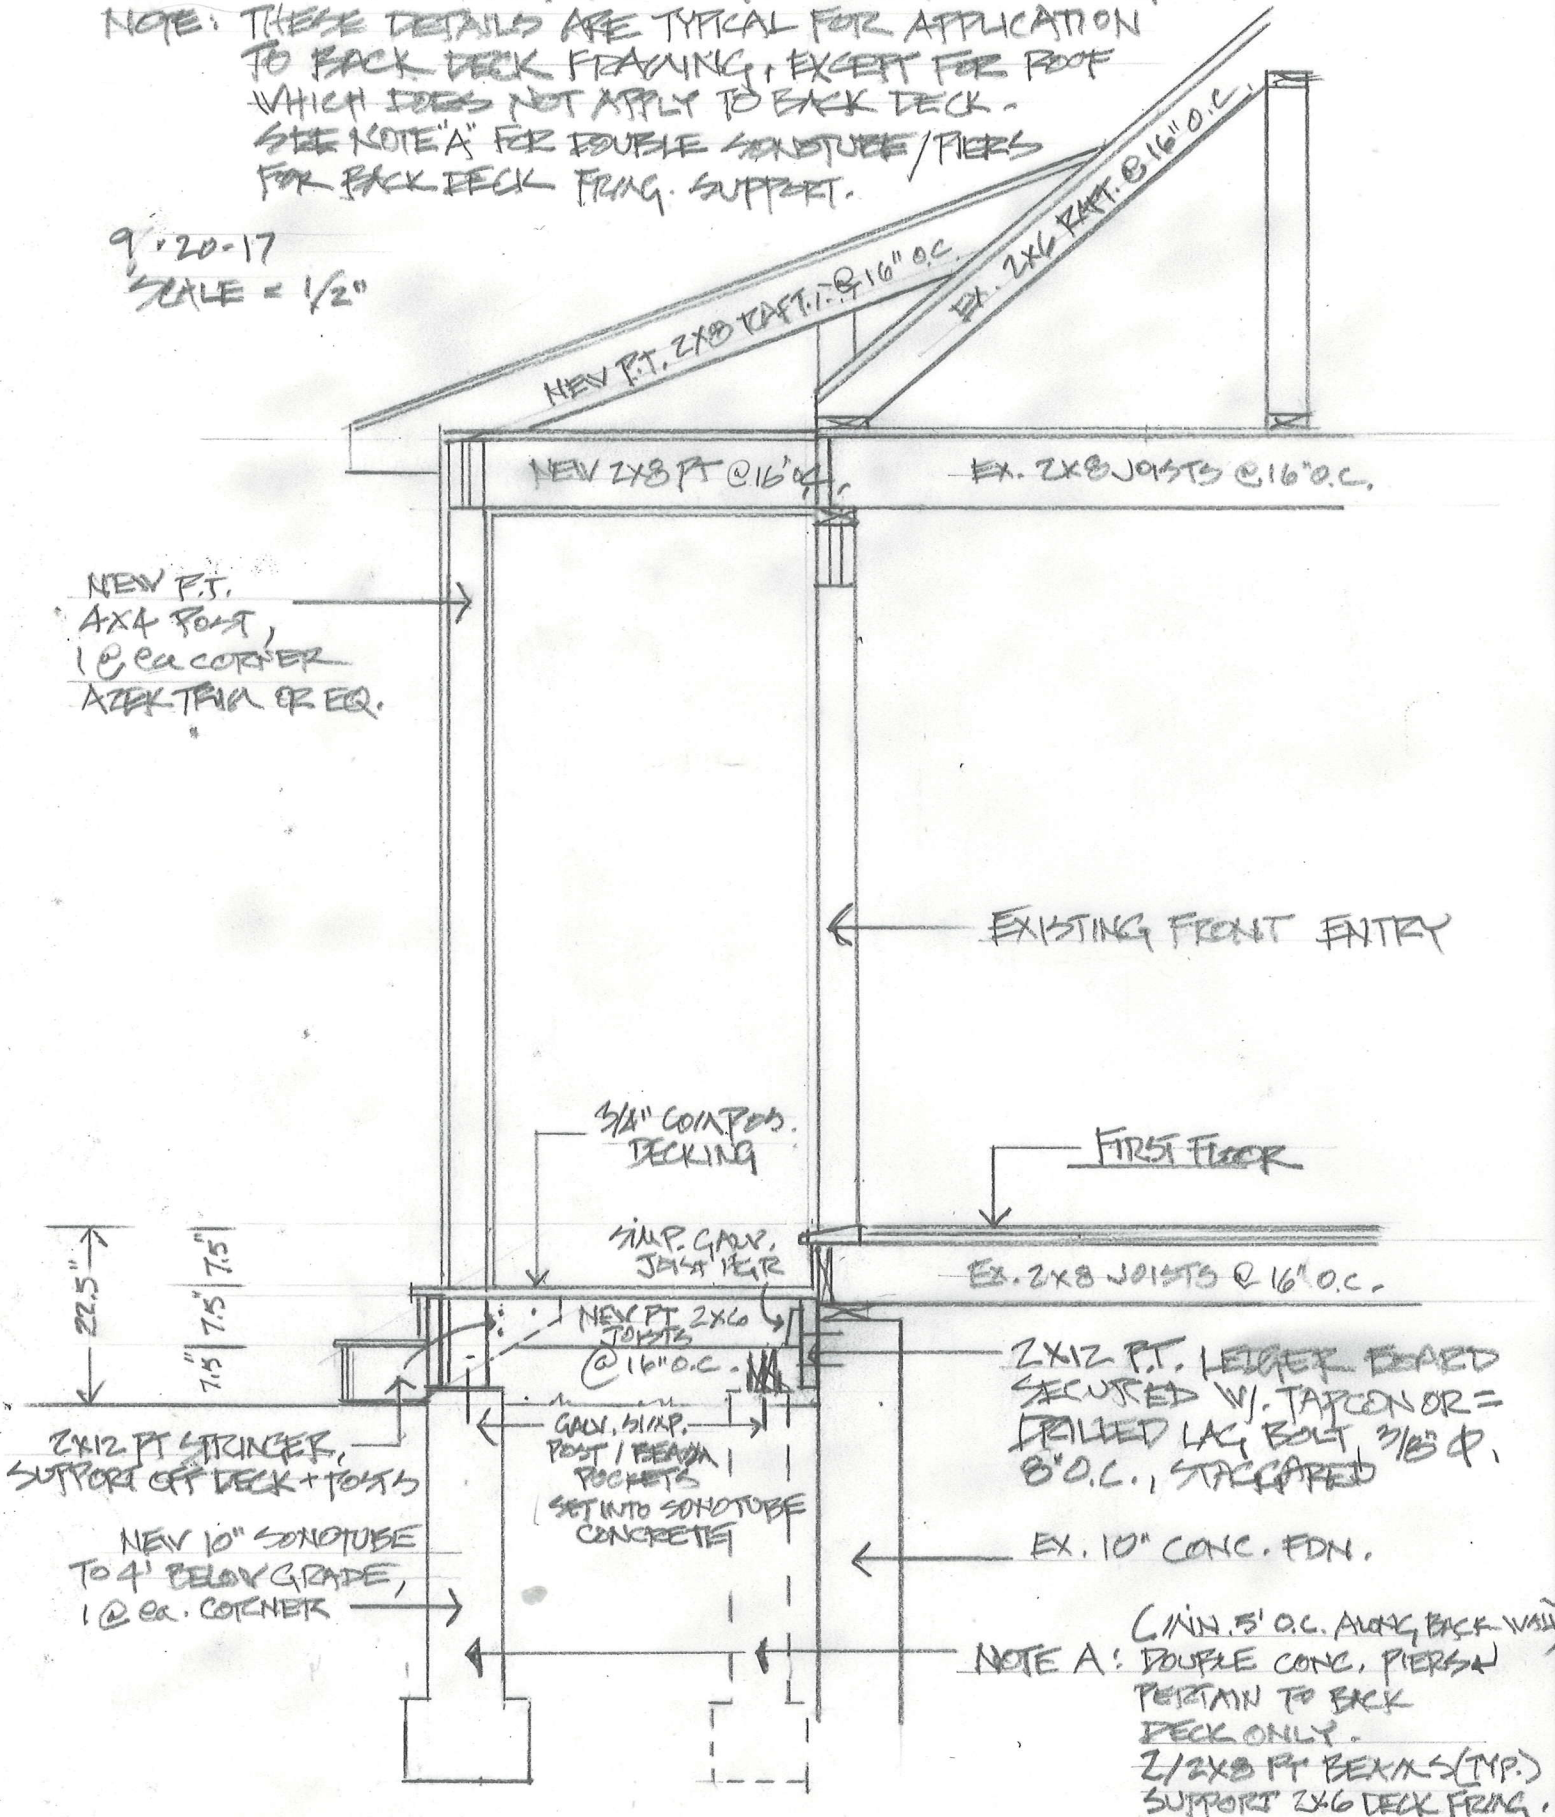 NOTE: THESE DETAILS ARE TYPICAL FOR APPLICATION
TO BACK DECK FRAMING, EXCEPT FOR ROOF
WHICH DOES NOT APPLY TO BACK DECK.
SEE NOTE "A" FOR DOUBLE SONOTUBE/PIERS
FOR BACK DECK FRMG. SUPPORT.
9.20.17
SCALE = 1/2"
NEW P.T. 2X8 RAFT. @ 16" O.C.
EX. 2X6 RAFT. @ 16" O.C.
NEW 2X8 PT @ 16" O.C.
EX. 2X8 JOISTS @ 16" O.C.
NEW P.T.
4X4 POST,
1 @ ea CORNER
AZEK TRIM OR EQ.
EXISTING FRONT ENTRY
3/4" COMPOS.
DECKING
FIRST FLOOR
SIMP. GALV.
JOIST HGR
EX. 2X8 JOISTS @ 16" O.C.
22.5"
7.5" 7.5" 7.5"
NEW PT 2X6
JOISTS
@ 16" O.C.
2X12 P.T. LEDGER BOARD
SECURED W/. TAPCON OR =
DRILLED LAG BOLT, 3/8" Φ,
8" O.C., STAGGARED
2X12 PT STRINGER,
SUPPORT OFF DECK + POSTS
GALV. SIMP.
POST / BEAM
POCKETS
SET INTO SONOTUBE
CONCRETE
NEW 10" SONOTUBE
TO 4' BELOW GRADE,
1 @ ea. CORNER
EX. 10" CONC. FDN.
(MIN. 5' O.C. ALONG BACK WALL)
NOTE A: DOUBLE CONC. PIERS
PERTAIN TO BACK
DECK ONLY.
2/2X8 PT BEAMS (TYP.)
SUPPORT 2X6 DECK FRMG.